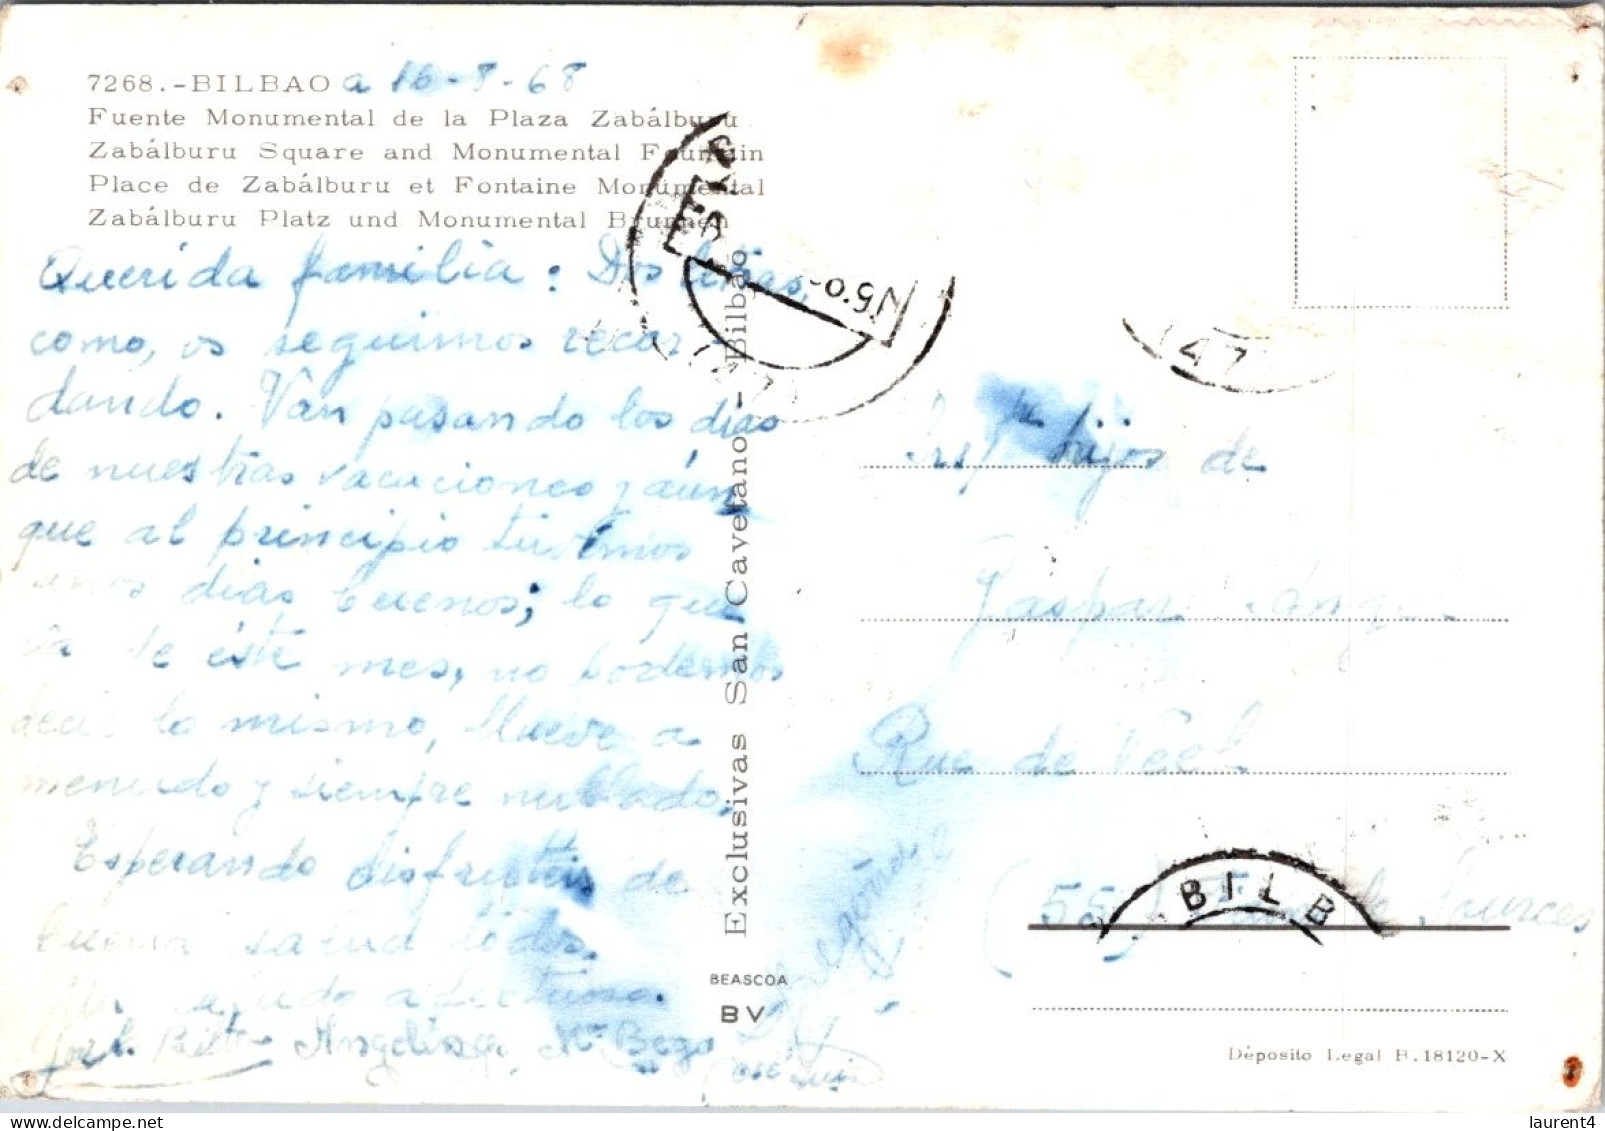 7268.-BILBAO a 16-8-68
Fuente Monumental de la Plaza Zabálburu
Zabálburu Square and Monumental Fountain
Place de Zabálburu et Fontaine Monumental
Zabálburu Platz und Monumental Brunnen
Querida familia: Dos letras,
como, os seguimos recor-
dando. Van pasando los días
de nuestras vacaciones y aún
que al principio tuvimos
unos dias buenos; lo que
va de éste mes, no podemos
decir lo mismo, llueve a
menudo y siempre nublado.
Esperando disfrutéis de
buena salud todos.
saludo afectuoso.
Angelines, Mª Bego
José Luis
Exclusivas San Cayetano - Bilbao
BEASCOA
BV
hijos de
Gaspar
Rue de
(55)
Sources
47
BILB
Déposito Legal B.18120-X
laurent4